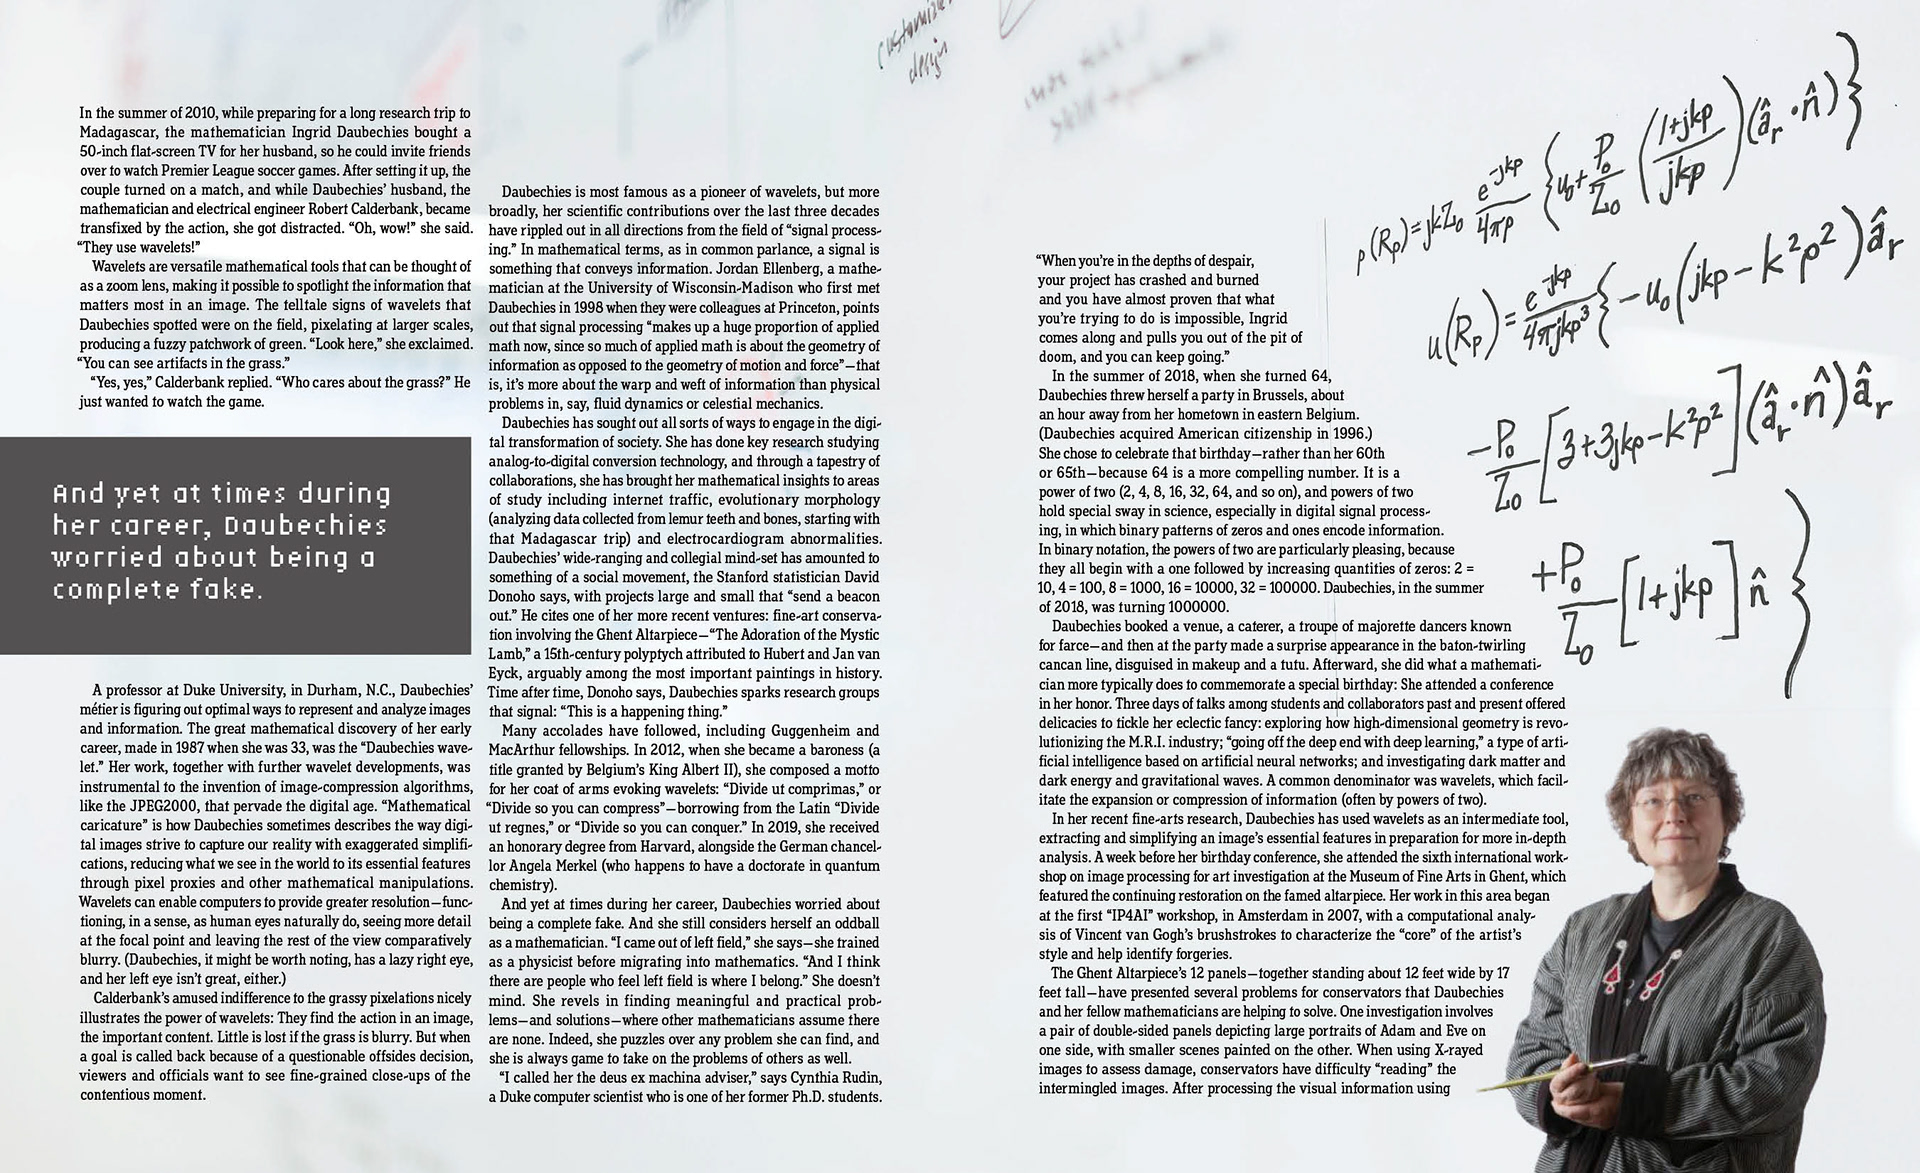 In the summer of 2010, while preparing for a long research trip to
Madagascar, the mathematician Ingrid Daubechies bought a
50-inch flat-screen TV for her husband, so he could invite friends
over to watch Premier League soccer games. After setting it up, the
couple turned on a match, and while Daubechies’ husband, the
mathematician and electrical engineer Robert Calderbank, became
transfixed by the action, she got distracted. “Oh, wow!” she said.
“They use wavelets!”
Wavelets are versatile mathematical tools that can be thought of
as a zoom lens, making it possible to spotlight the information that
matters most in an image. The telltale signs of wavelets that
Daubechies spotted were on the field, pixelating at larger scales,
producing a fuzzy patchwork of green. “Look here,” she exclaimed.
“You can see artifacts in the grass.”
“Yes, yes,” Calderbank replied. “Who cares about the grass?” He
just wanted to watch the game.
And yet at times during
her career, Daubechies
worried about being a
complete fake.
A professor at Duke University, in Durham, N.C., Daubechies’
métier is figuring out optimal ways to represent and analyze images
and information. The great mathematical discovery of her early
career, made in 1987 when she was 33, was the “Daubechies wave-
let.” Her work, together with further wavelet developments, was
instrumental to the invention of image-compression algorithms,
like the JPEG2000, that pervade the digital age. “Mathematical
caricature” is how Daubechies sometimes describes the way digi-
tal images strive to capture our reality with exaggerated simplifi-
cations, reducing what we see in the world to its essential features
through pixel proxies and other mathematical manipulations.
Wavelets can enable computers to provide greater resolution—func-
tioning, in a sense, as human eyes naturally do, seeing more detail
at the focal point and leaving the rest of the view comparatively
blurry. (Daubechies, it might be worth noting, has a lazy right eye,
and her left eye isn’t great, either.)
Calderbank’s amused indifference to the grassy pixelations nicely
illustrates the power of wavelets: They find the action in an image,
the important content. Little is lost if the grass is blurry. But when
a goal is called back because of a questionable offsides decision,
viewers and officials want to see fine-grained close-ups of the
contentious moment.
Daubechies is most famous as a pioneer of wavelets, but more
broadly, her scientific contributions over the last three decades
have rippled out in all directions from the field of “signal process-
ing.” In mathematical terms, as in common parlance, a signal is
something that conveys information. Jordan Ellenberg, a mathe-
matician at the University of Wisconsin-Madison who first met
Daubechies in 1998 when they were colleagues at Princeton, points
out that signal processing “makes up a huge proportion of applied
math now, since so much of applied math is about the geometry of
information as opposed to the geometry of motion and force”—that
is, it’s more about the warp and weft of information than physical
problems in, say, fluid dynamics or celestial mechanics.
Daubechies has sought out all sorts of ways to engage in the digi-
tal transformation of society. She has done key research studying
analog-to-digital conversion technology, and through a tapestry of
collaborations, she has brought her mathematical insights to areas
of study including internet traffic, evolutionary morphology
(analyzing data collected from lemur teeth and bones, starting with
that Madagascar trip) and electrocardiogram abnormalities.
Daubechies’ wide-ranging and collegial mind-set has amounted to
something of a social movement, the Stanford statistician David
Donoho says, with projects large and small that “send a beacon
out.” He cites one of her more recent ventures: fine-art conserva-
tion involving the Ghent Altarpiece—“The Adoration of the Mystic
Lamb,” a 15th-century polyptych attributed to Hubert and Jan van
Eyck, arguably among the most important paintings in history.
Time after time, Donoho says, Daubechies sparks research groups
that signal: “This is a happening thing.”
Many accolades have followed, including Guggenheim and
MacArthur fellowships. In 2012, when she became a baroness (a
title granted by Belgium’s King Albert II), she composed a motto
for her coat of arms evoking wavelets: “Divide ut comprimas,” or
“Divide so you can compress”—borrowing from the Latin “Divide
ut regnes,” or “Divide so you can conquer.” In 2019, she received
an honorary degree from Harvard, alongside the German chancel-
lor Angela Merkel (who happens to have a doctorate in quantum
chemistry).
And yet at times during her career, Daubechies worried about
being a complete fake. And she still considers herself an oddball
as a mathematician. “I came out of left field,” she says—she trained
as a physicist before migrating into mathematics. “And I think
there are people who feel left field is where I belong.” She doesn’t
mind. She revels in finding meaningful and practical prob-
lems—and solutions—where other mathematicians assume there
are none. Indeed, she puzzles over any problem she can find, and
she is always game to take on the problems of others as well.
“I called her the deus ex machina adviser,” says Cynthia Rudin,
a Duke computer scientist who is one of her former Ph.D. students.
design
“When you’re in the depths of despair,
your project has crashed and burned
and you have almost proven that what
you’re trying to do is impossible, Ingrid
comes along and pulls you out of the pit of
doom, and you can keep going.”
In the summer of 2018, when she turned 64,
Daubechies threw herself a party in Brussels, about
an hour away from her hometown in eastern Belgium.
(Daubechies acquired American citizenship in 1996.)
She chose to celebrate that birthday—rather than her 60th
or 65th—because 64 is a more compelling number. It is a
power of two (2, 4, 8, 16, 32, 64, and so on), and powers of two
hold special sway in science, especially in digital signal process-
ing, in which binary patterns of zeros and ones encode information.
In binary notation, the powers of two are particularly pleasing, because
they all begin with a one followed by increasing quantities of zeros: 2 =
10, 4 = 100, 8 = 1000, 16 = 10000, 32 = 100000. Daubechies, in the summer
of 2018, was turning 1000000.
Daubechies booked a venue, a caterer, a troupe of majorette dancers known
for farce—and then at the party made a surprise appearance in the baton-twirling
cancan line, disguised in makeup and a tutu. Afterward, she did what a mathemati-
cian more typically does to commemorate a special birthday: She attended a conference
in her honor. Three days of talks among students and collaborators past and present offered
delicacies to tickle her eclectic fancy: exploring how high-dimensional geometry is revo-
lutionizing the M.R.I. industry; “going off the deep end with deep learning,” a type of arti-
ficial intelligence based on artificial neural networks; and investigating dark matter and
dark energy and gravitational waves. A common denominator was wavelets, which facil-
itate the expansion or compression of information (often by powers of two).
In her recent fine-arts research, Daubechies has used wavelets as an intermediate tool,
extracting and simplifying an image’s essential features in preparation for more in-depth
analysis. A week before her birthday conference, she attended the sixth international work-
shop on image processing for art investigation at the Museum of Fine Arts in Ghent, which
featured the continuing restoration on the famed altarpiece. Her work in this area began
at the first “IP4AI” workshop, in Amsterdam in 2007, with a computational analy-
sis of Vincent van Gogh’s brushstrokes to characterize the “core” of the artist’s
style and help identify forgeries.
The Ghent Altarpiece’s 12 panels—together standing about 12 feet wide by 17
feet tall—have presented several problems for conservators that Daubechies
and her fellow mathematicians are helping to solve. One investigation involves
a pair of double-sided panels depicting large portraits of Adam and Eve on
one side, with smaller scenes painted on the other. When using X-rayed
images to assess damage, conservators have difficulty “reading” the
intermingled images. After processing the visual information using
p(Rp) = jkZ₀ e^-jkρ/4πρ {u₀ + P₀/Z₀ (1+jkρ/jkρ)(âr · n̂)}
u(Rp) = e^-jkρ/4πjkρ³ {-u₀(jkρ - k²ρ²)âr
-P₀/Z₀ [3+3jkρ-k²ρ²](âr · n̂)âr
+P₀/Z₀ [1+jkρ] n̂ }